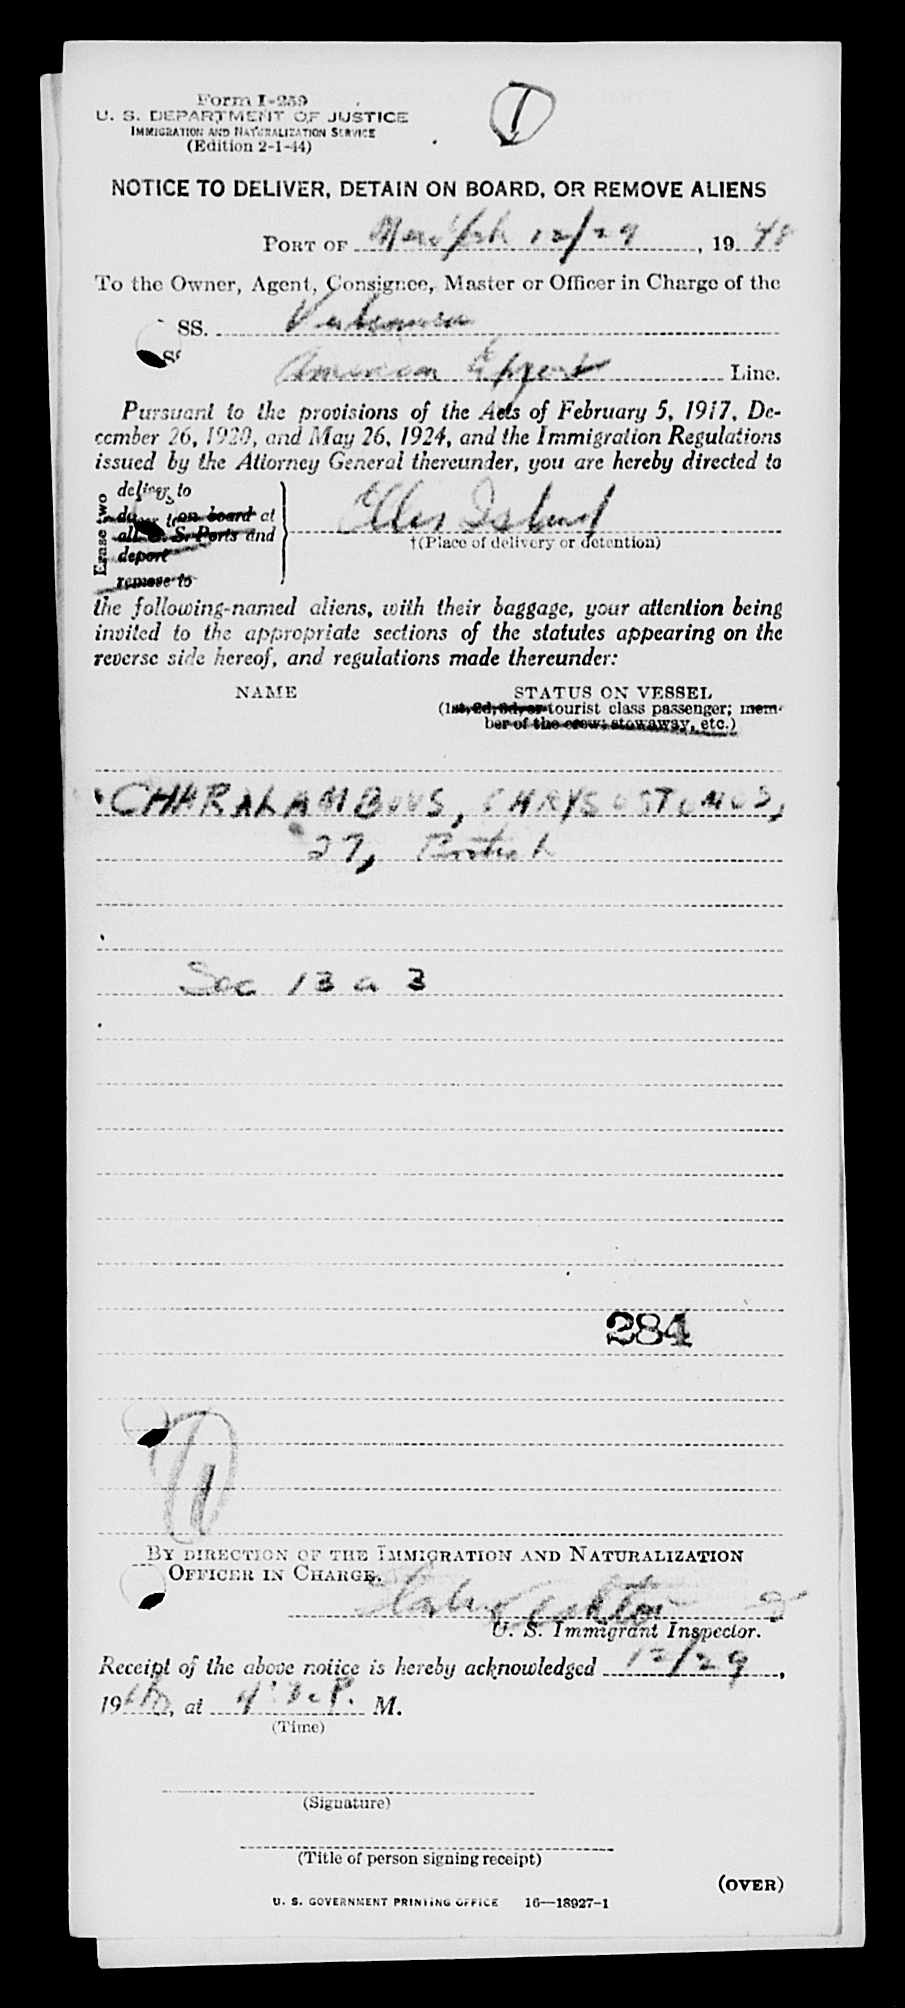 Form I-259
U. S. DEPARTMENT OF JUSTICE
IMMIGRATION AND NATURALIZATION SERVICE
(Edition 2-1-44)
1
NOTICE TO DELIVER, DETAIN ON BOARD, OR REMOVE ALIENS
PORT OF New York 12/29, 19 48
To the Owner, Agent, Consignee, Master or Officer in Charge of the
SS.
SS American Export Line.
Pursuant to the provisions of the Acts of February 5, 1917, De-
cember 26, 1920, and May 26, 1924, and the Immigration Regulations
issued by the Attorney General thereunder, you are hereby directed to
Erase two
deliver to
on board at
all U. S. Ports and
deport
remove to
Ellis Island
†(Place of delivery or detention)
the following-named aliens, with their baggage, your attention being
invited to the appropriate sections of the statutes appearing on the
reverse side hereof, and regulations made thereunder:
NAME STATUS ON VESSEL
(1st, 2d, 3d, or tourist class passenger; mem-
ber of the crew; stowaway, etc.)
CHARALAMBOUS, CHRYSOSTOMOS,
27, British
Sec 13 a 3
284
1
BY DIRECTION OF THE IMMIGRATION AND NATURALIZATION
OFFICER IN CHARGE.
U. S. Immigrant Inspector.
Receipt of the above notice is hereby acknowledged 12/29,
19 48, at 4:30 P. M.
(Time)
(Signature)
(Title of person signing receipt)
(OVER)
U. S. GOVERNMENT PRINTING OFFICE 16—18927-1